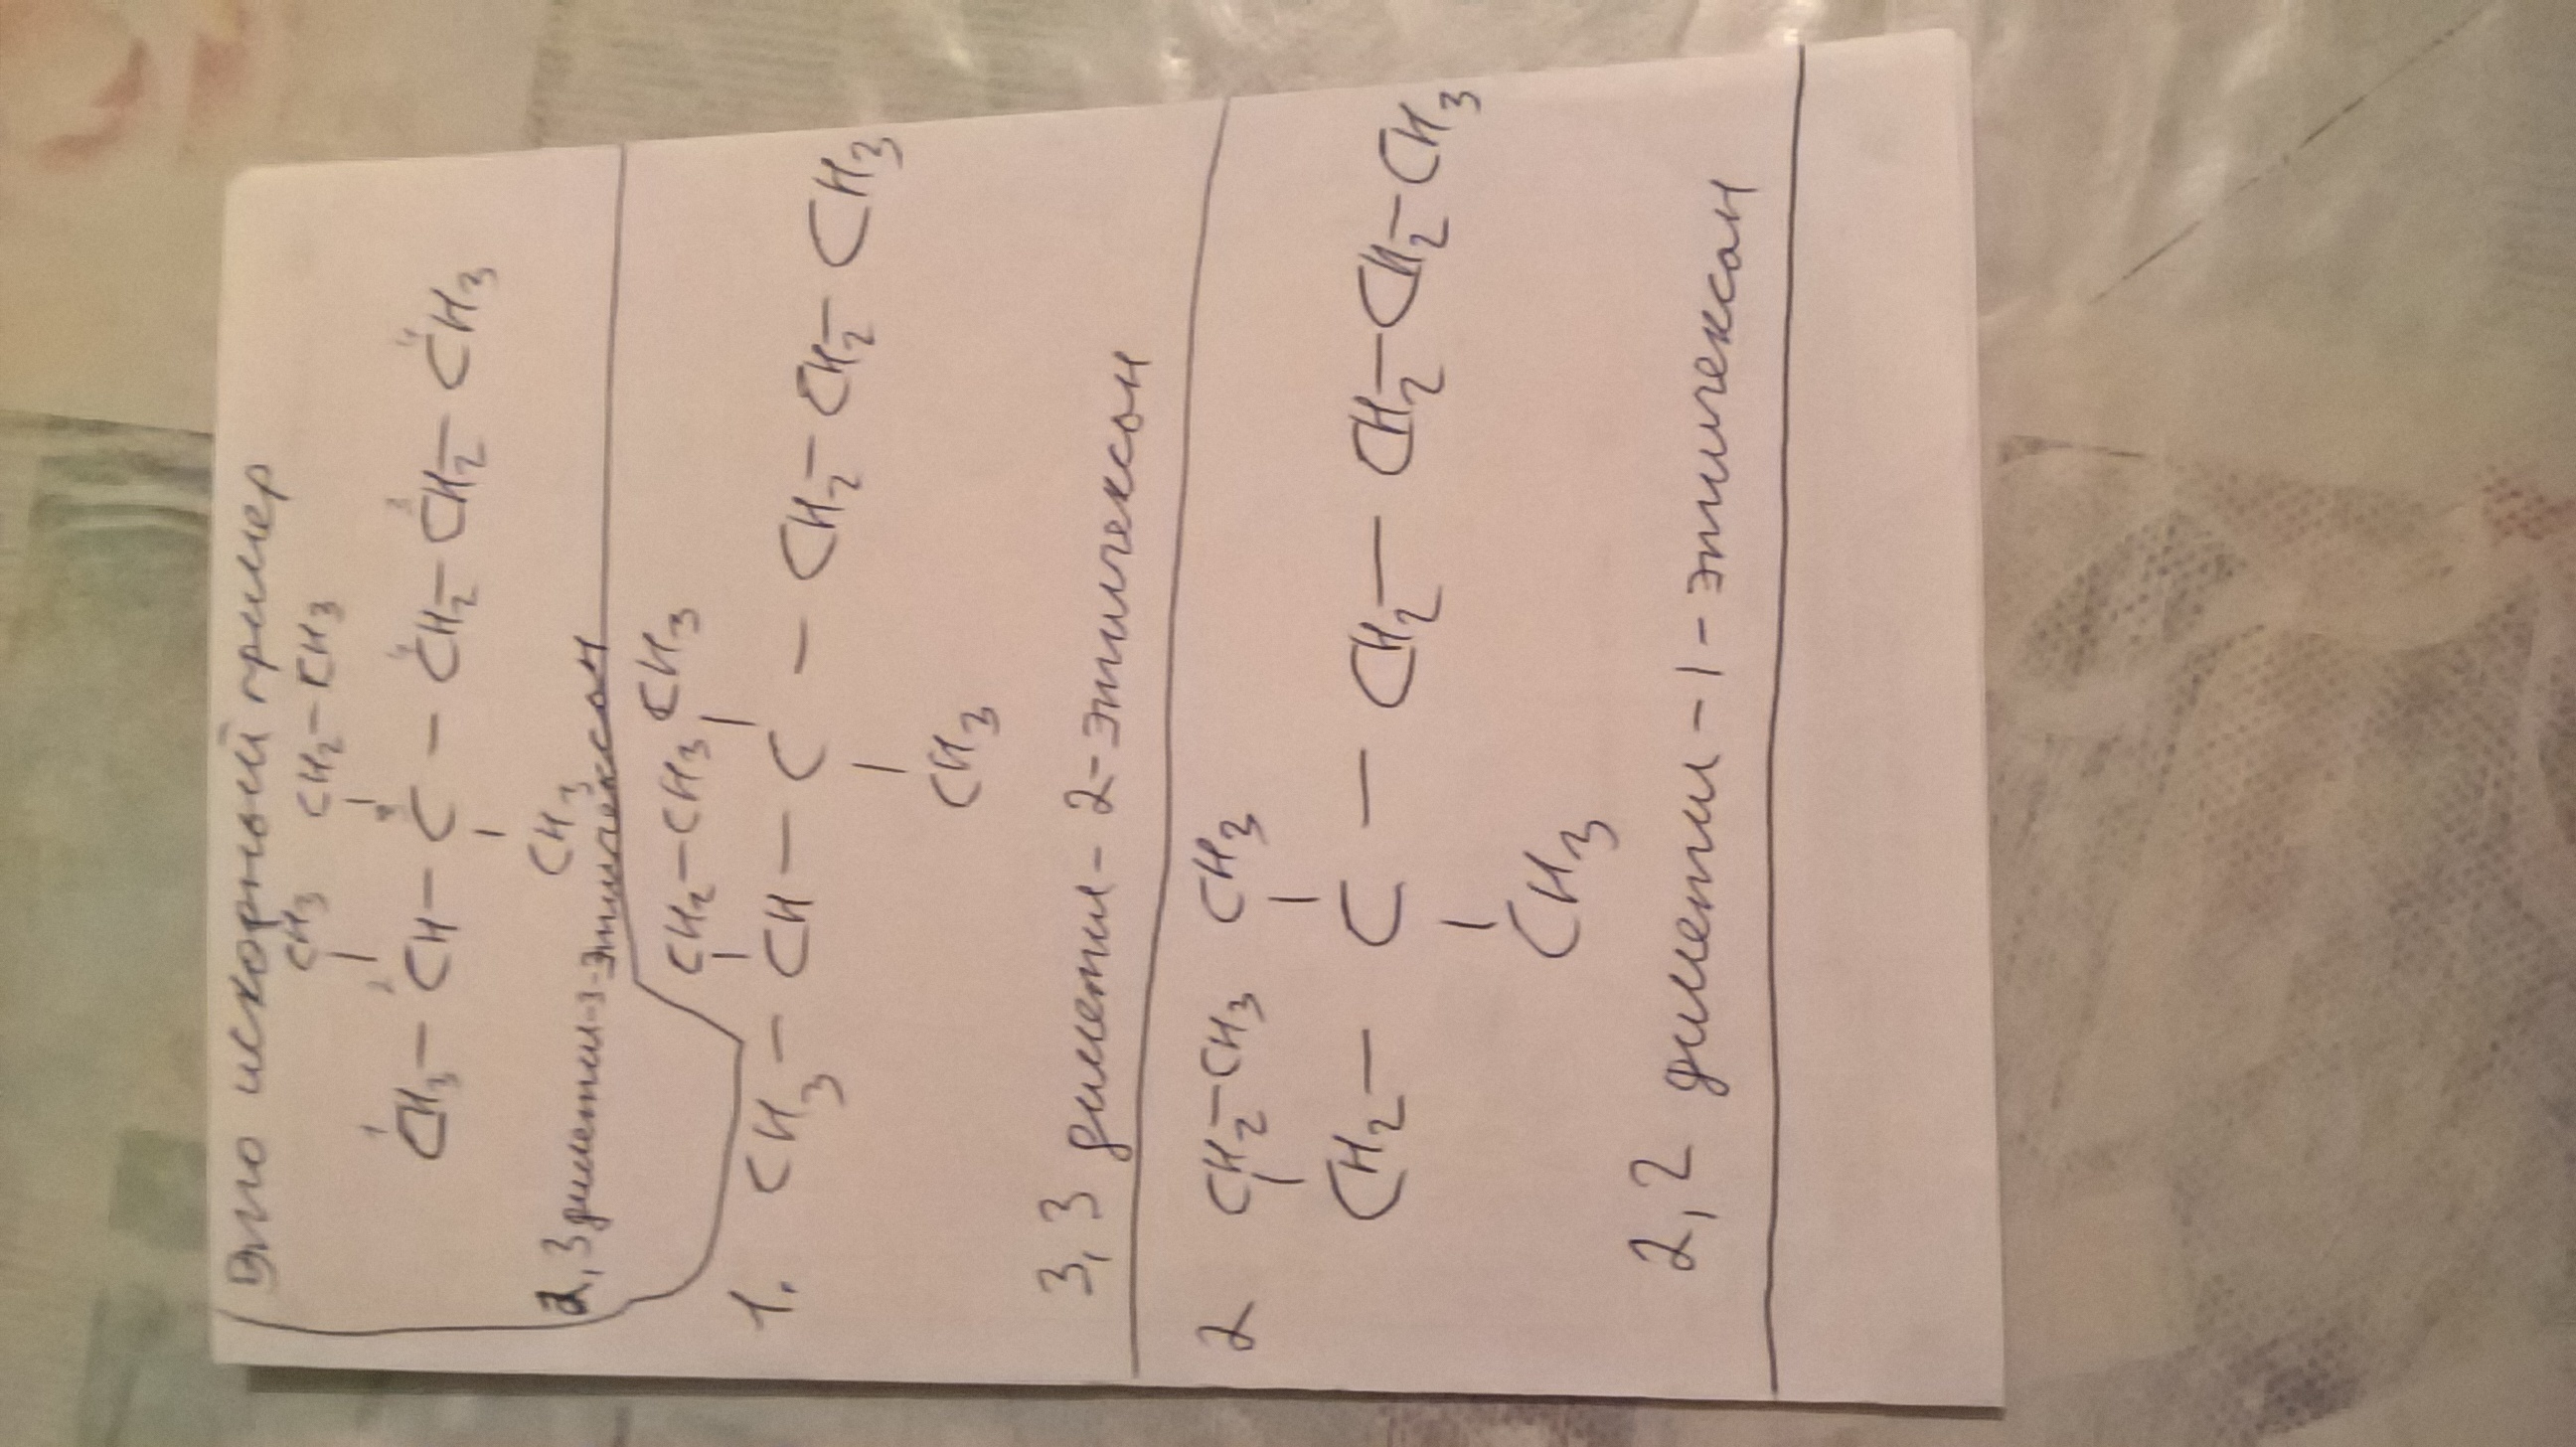 Это исходный пример
CH3 CH2-CH3
1 2 3 4 3 4
CH3 - CH - C - CH2-CH2-CH3
CH3
2,3 диметил-3-этилгексан
CH2-CH3 CH3
1. CH3 - CH - C - CH2-CH2-CH3
CH3
3,3 диметил-2-этилгексан
2 CH2-CH3 CH3
CH2- C - CH2 - CH2-CH2-CH3
CH3
2,2 диметил-1-этилгексан